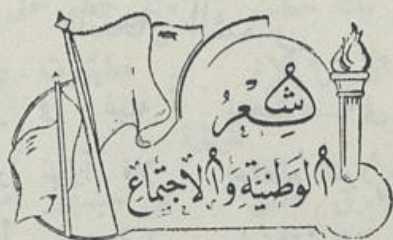 شِعْرُ
الوَطَنِيَّةِ وَالاجْتِمَاعِ